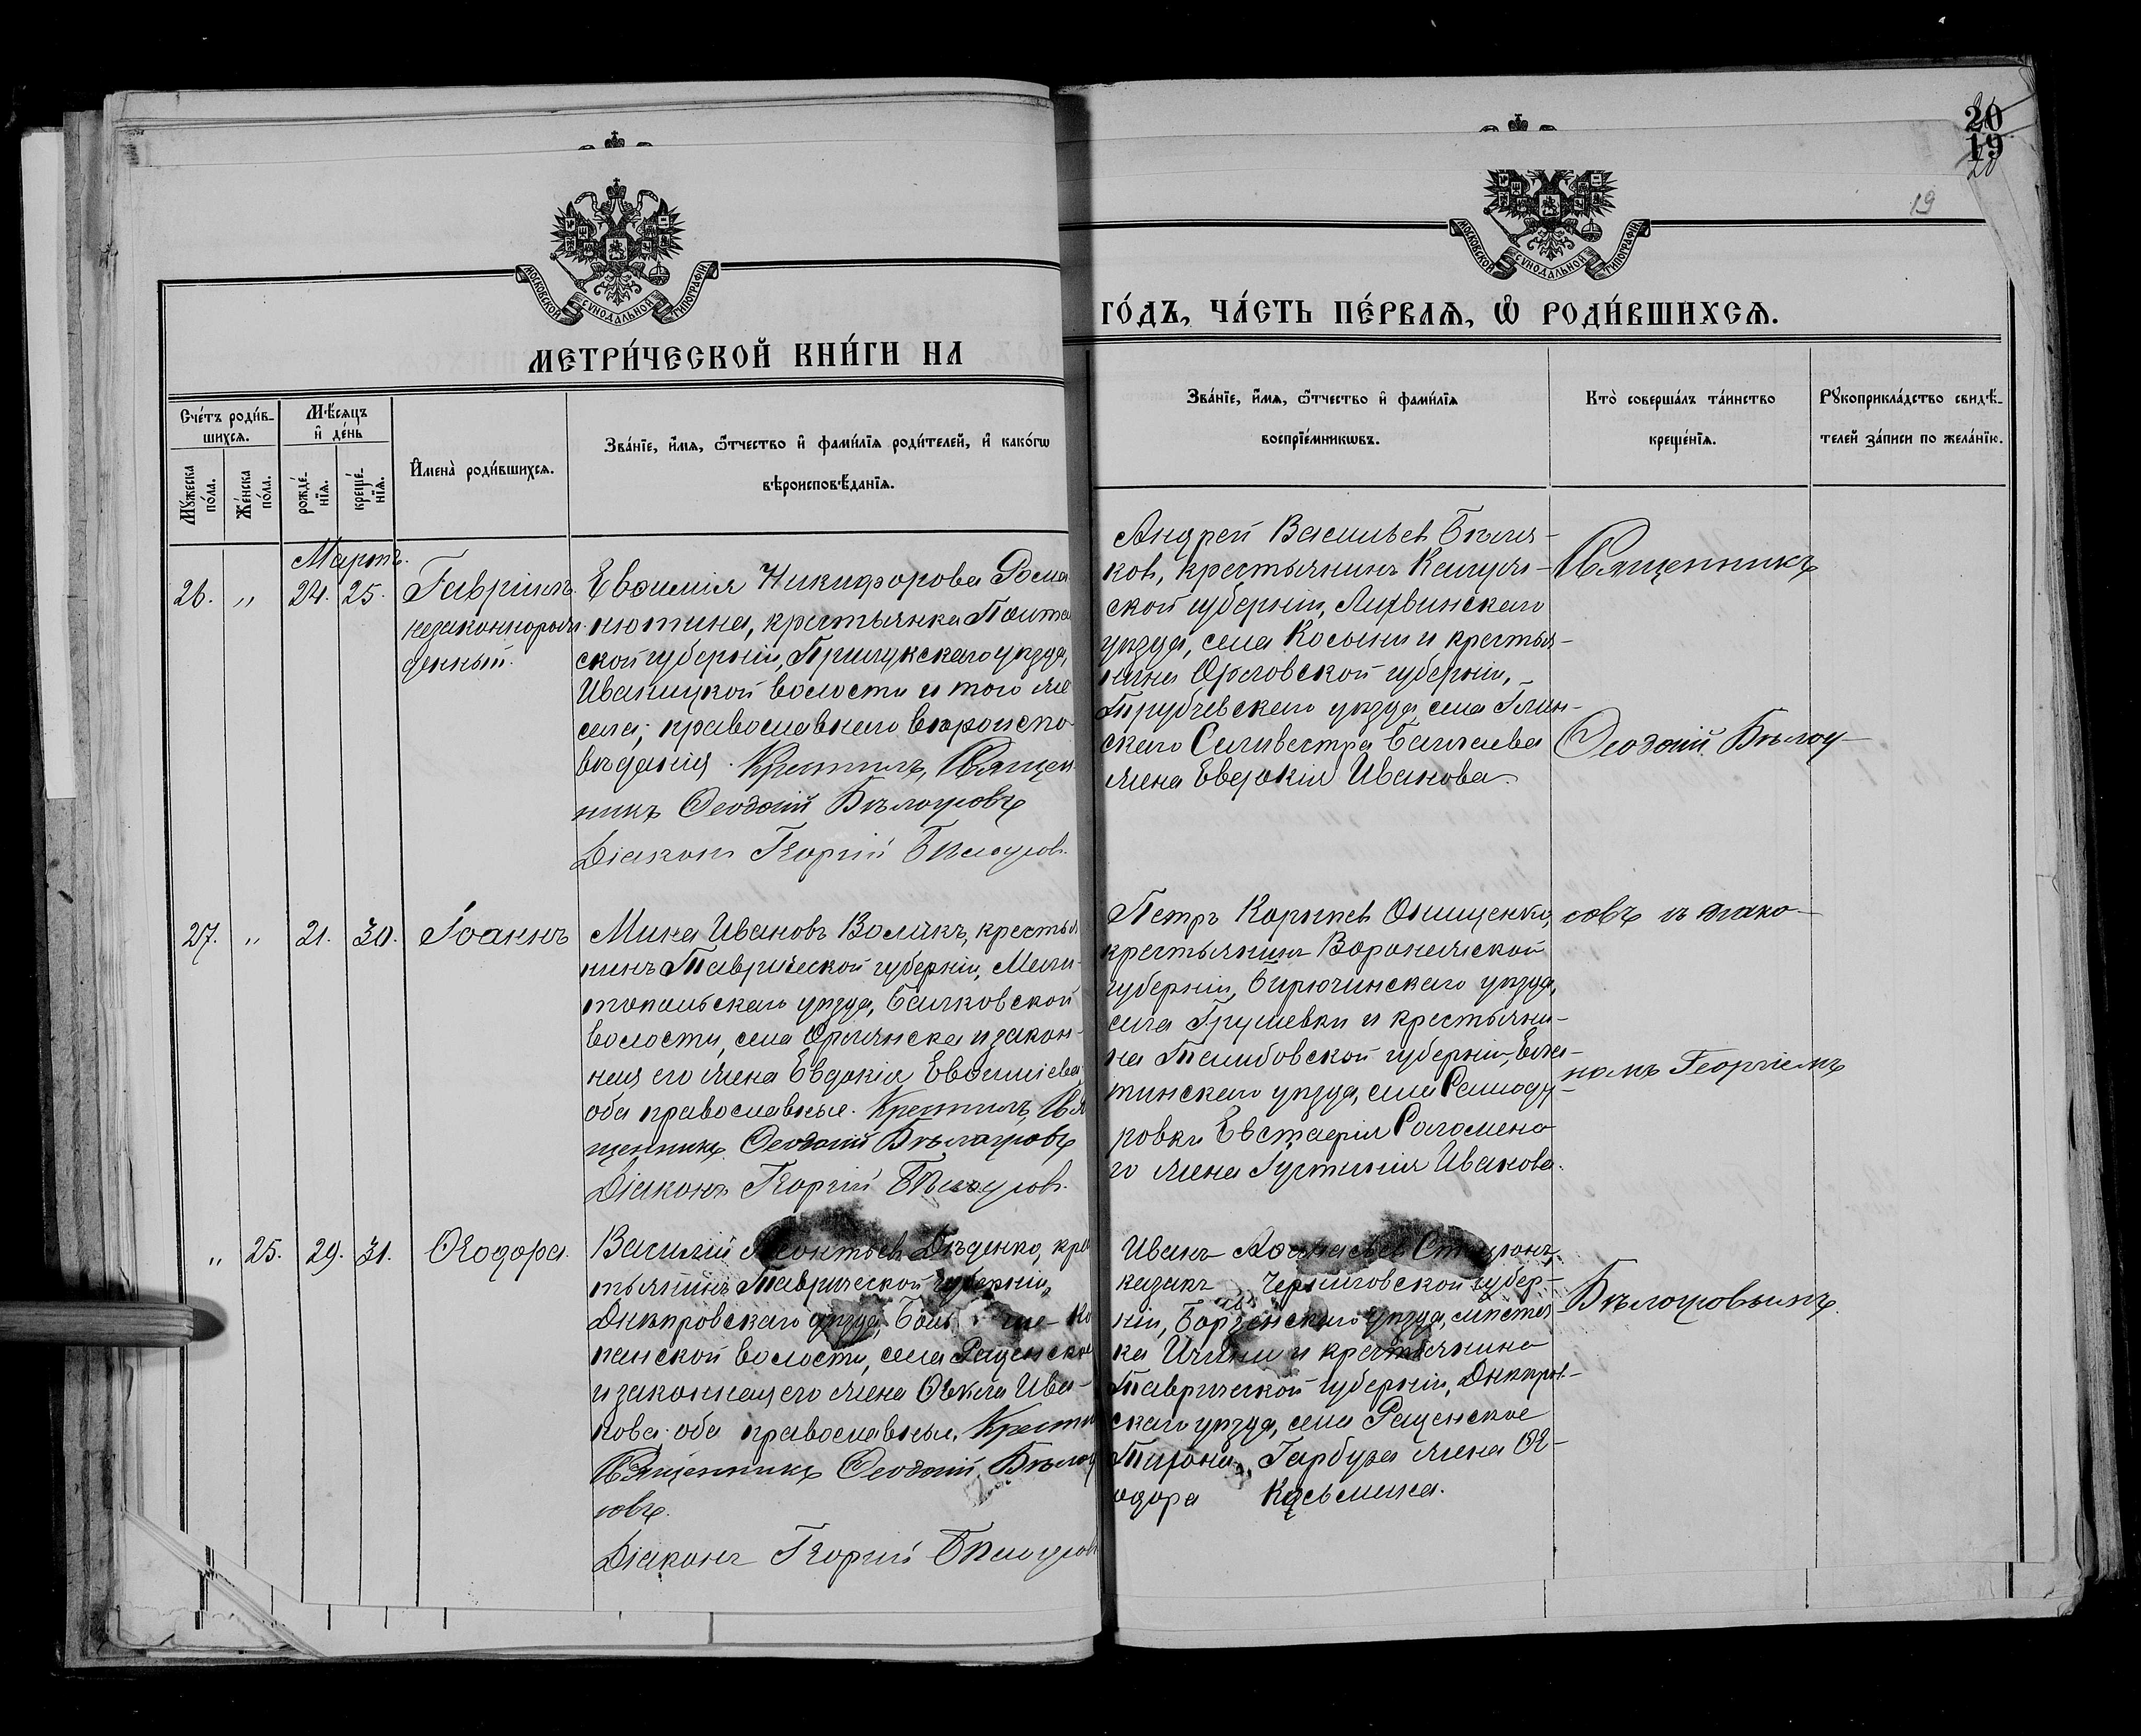 20
19
20
19
МОСКОВСКОЙ СУНОДАЛЬНОЙ ТИПОГРАФІИ.
МОСКОВСКОЙ СУНОДАЛЬНОЙ ТИПОГРАФІИ.
МЕТРИ́ЧЕСКОЙ КНИ́ГИ НА
ГО́ДЪ, ЧА́СТЬ ПЕ́РВАѦ, Ѡ҆ РОДИ́ВШИХСѦ.
Сче́тъ роди́в-
шихсѧ.
Мꙋ́жеска по́ла.
Же́нска по́ла.
Мѣ́сѧцъ
и҆ де́нь
рожде́-
нїѧ.
креще́-
нїѧ.
И҆мена̀ роди́вшихсѧ.
Зва́нїе, и҆́мѧ, ѻ҆́тчество и҆ фами́лїѧ роди́телей, и҆ како́гѡ
вѣроисповѣ́данїѧ.
Зва́нїе, и҆́мѧ, ѻ҆́тчество и҆ фами́лїѧ
воспрїе́мникѡвъ.
Кто̀ соверша́лъ та́инство
креще́нїѧ.
Рꙋкоприкла́дство свидѣ́-
телей за́писи по жела́нїю.
Мартъ.
26. „ 24. 25. Гавріилъ
незаконнорож-
денный.
Евѳимія Никифорова Рома
нютина, крестьянка Полта
ской губерніи, Прилукскаго уѣзда,
Иваницкой волости и того же
села; православнаго вѣроиспо-
вѣданія. Крестилъ, Священ
никъ Ѳеодосій Бѣлоусовъ
Діаконъ Георгій Бѣлоусовъ.
Андрей Васильевъ Бѣля-
ковъ, крестьянинъ Калуж-
ской губерніи, Лихвинскаго
уѣзда, села Косыни и крестья-
нина Орловской губерніи,
Трубчевскаго уѣзда села Глин-
скаго Селивестра
жена Евдокія Иванова.
Священникъ
Ѳеодосій Бѣлоу-
27. „ 21. 30. Іоаннъ
Мина Ивановъ Воликъ, крестья
нинъ Таврической губерніи, Мели-
топольскаго уѣзда, Балковской
волости, села Орлянска и закон-
ная его жена Евдокія Евѳиміева
оба православные. Крестилъ, Свя
щенникъ Ѳеодосій Бѣлоусовъ
Діаконъ Георгій Бѣлоусовъ.
Петръ Карпѣевъ Онищенко,
крестьянинъ Воронежской
губерніи, Бирючинскаго уѣзда,
села Грушевки и крестьяни-
на Тамбовской губерніи,
тинскаго уѣзда, села
ровки Евстафія
го жена Іустинія Иванова.
совъ съ діако-
номъ Георгіемъ
„ 25. 29. 31. Ѳеодора.
Василій Леонтьевъ Дѣденко, кре
тьянинъ Таврической губерніи,
Днѣпровскаго уѣзда, Больше-Ко
панской волости, села Раденское
и законная его жена Ѳекла Ива-
нова оба православные. Крести
Священникъ Ѳеодосій Бѣлоу
совъ.
Діаконъ Георгій Бѣлоусовъ
Иванъ Аѳанасьевъ
казакъ Черниговской губер-
ніи, Борзенскаго уѣзда, мѣстеч
ка Ични и крестьянина
Таврической губерніи, Днѣпров-
скаго уѣзда, села Раденское
Тихона Гарбуза жена Ѳе-
одора Касьмина.
Бѣлоусовымъ.